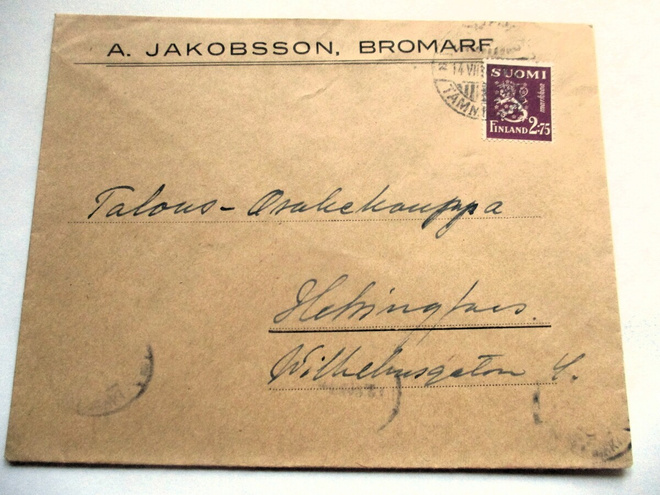 A. JAKOBSSON, BROMARF
14 VII
TAMM
SUOMI
markkaa
FINLAND 2-75
Talous-Osakekauppa
Helsingfors.
Wilhelmsgatan 4.